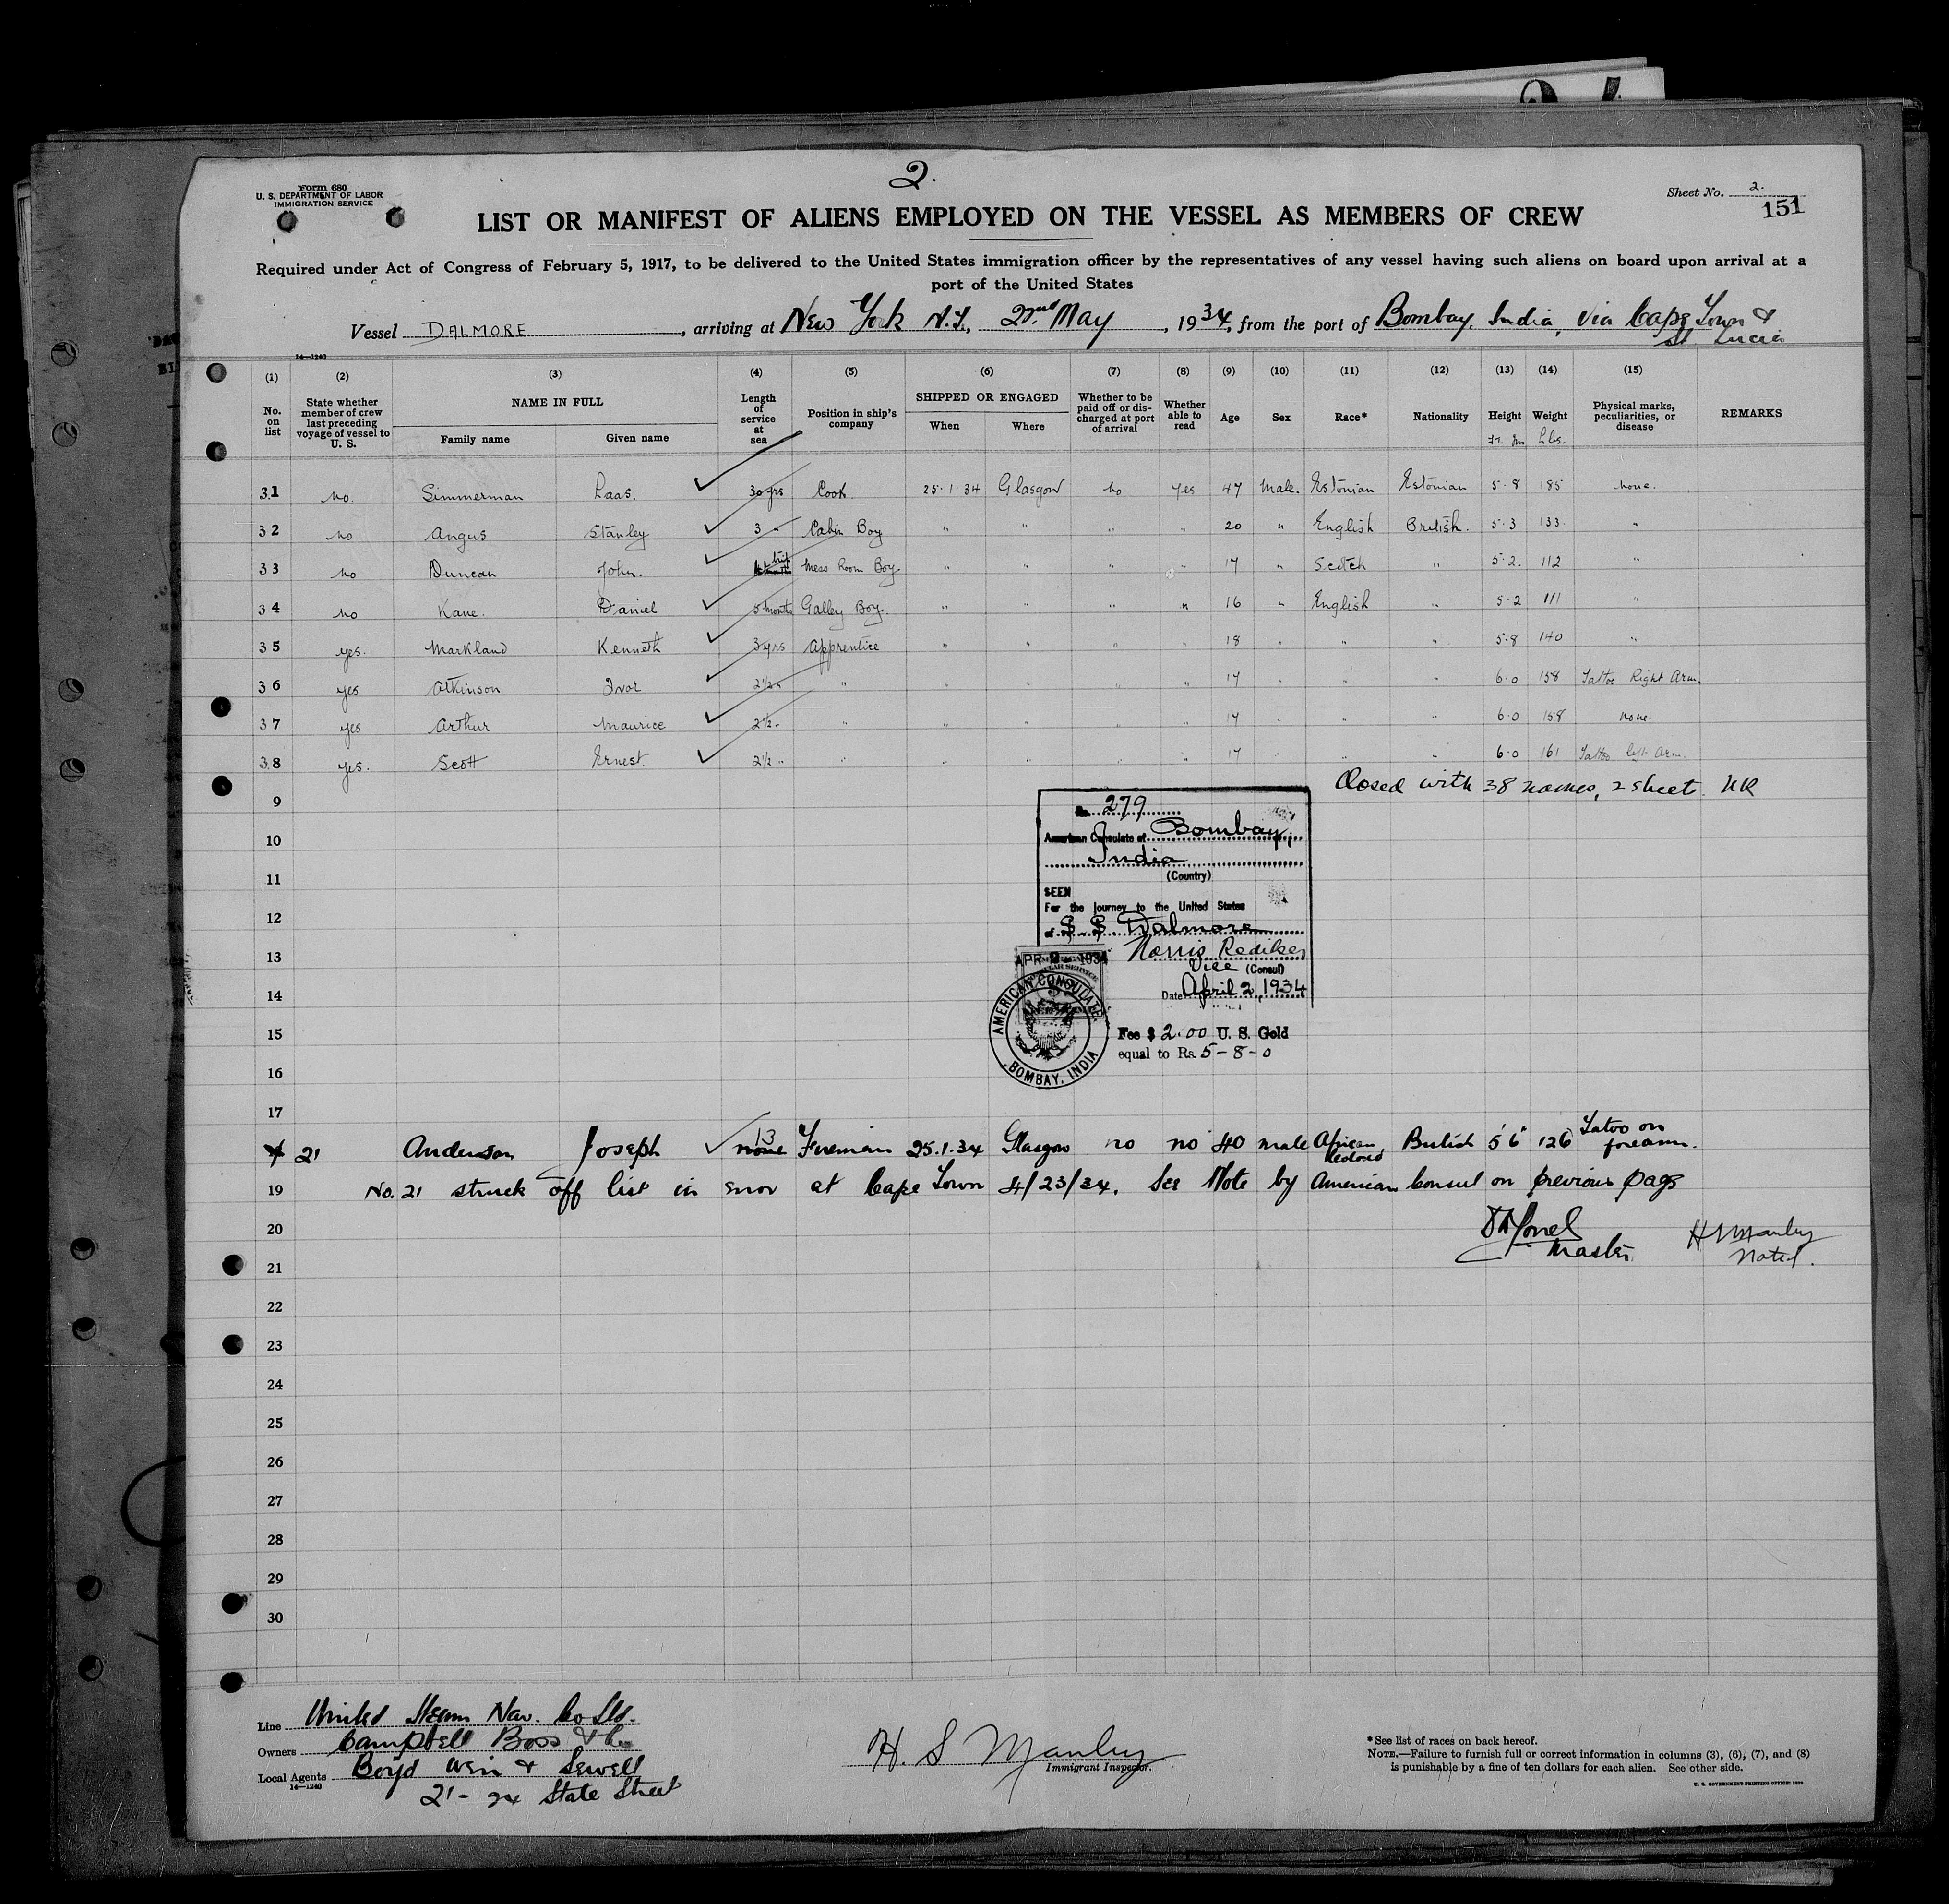 2.
Form 680
U. S. DEPARTMENT OF LABOR
IMMIGRATION SERVICE
Sheet No. 2.
151
LIST OR MANIFEST OF ALIENS EMPLOYED ON THE VESSEL AS MEMBERS OF CREW
Required under Act of Congress of February 5, 1917, to be delivered to the United States immigration officer by the representatives of any vessel having such aliens on board upon arrival at a
port of the United States
Vessel DALMORE, arriving at New York N.Y., 2nd May, 1934, from the port of Bombay, India, via Cape Town &
St. Lucia
14—1240
(1) (2) (3) (4) (5) (6) (7) (8) (9) (10) (11) (12) (13) (14) (15)
No. on list State whether member of crew last preceding voyage of vessel to U. S. NAME IN FULL Family name Given name Length of service at sea Position in ship's company SHIPPED OR ENGAGED When Where Whether to be paid off or discharged at port of arrival Whether able to read Age Sex Race* Nationality Height ft. ins Weight Lbs. Physical marks, peculiarities, or disease REMARKS
31 no. Simmerman Laas. 30 yrs Cook. 25.1.34 Glasgow no yes 47 Male. Estonian Estonian 5.8 185 none.
32 no Angus Stanley 3 " Cabin Boy " " " " 20 " English British. 5.3 133 "
33 no Duncan John. trip Mess Room Boy " " " " 17 " Scotch " 5.2. 112 "
34 no Kane. Daniel 5 months Galley Boy. " " " " 16 " English " 5.2 111 "
35 yes. Markland Kenneth 3 yrs Apprentice " " " " 18 " " " 5.8 140 "
36 yes Atkinson Ivor 2½ " " " " " " 17 " " " 6.0 158 Tattoo Right Arm.
37 yes Arthur Maurice 2½ " " " " " " 17 " " " 6.0 158 none.
38 yes. Scott Ernest. 2½ " " " " " " 17 " " " 6.0 161 Tattoo left Arm.
Closed with 38 names, 2 sheet. NR
9
No. 279
10
American Consulate at Bombay,
India
11
(Country)
SEEN
12
For the journey to the United States
of S S Dalmore
13
Norris Rediker
APR 2 - 1934
Vice (Consul)
14
Date April 2, 1934
AMERICAN CONSULATE
BOMBAY, INDIA
15
Fee $ 2.00 U. S. Gold
equal to Rs. 5-8-0
16
17
21 Anderson Joseph none 13 Fireman 25.1.34 Glasgow no no 40 male African Colored British 5'6" 126 Tatoo on forearm.
19 No. 21 struck off list in error at Cape Town 4/23/34. See Note by American Consul on previous page
20
Master.
H S Manley
Noted.
21
22
23
24
25
26
27
28
29
30
Line United Steam Nav. Co Ltd.
Owners Campbell Boss & Co
Local Agents Boyd Weir & Sewell
14—1240
21-24 State Street
H. S Manley
Immigrant Inspector.
*See list of races on back hereof.
NOTE.—Failure to furnish full or correct information in columns (3), (6), (7), and (8)
is punishable by a fine of ten dollars for each alien. See other side.
U. S. GOVERNMENT PRINTING OFFICE: 1929